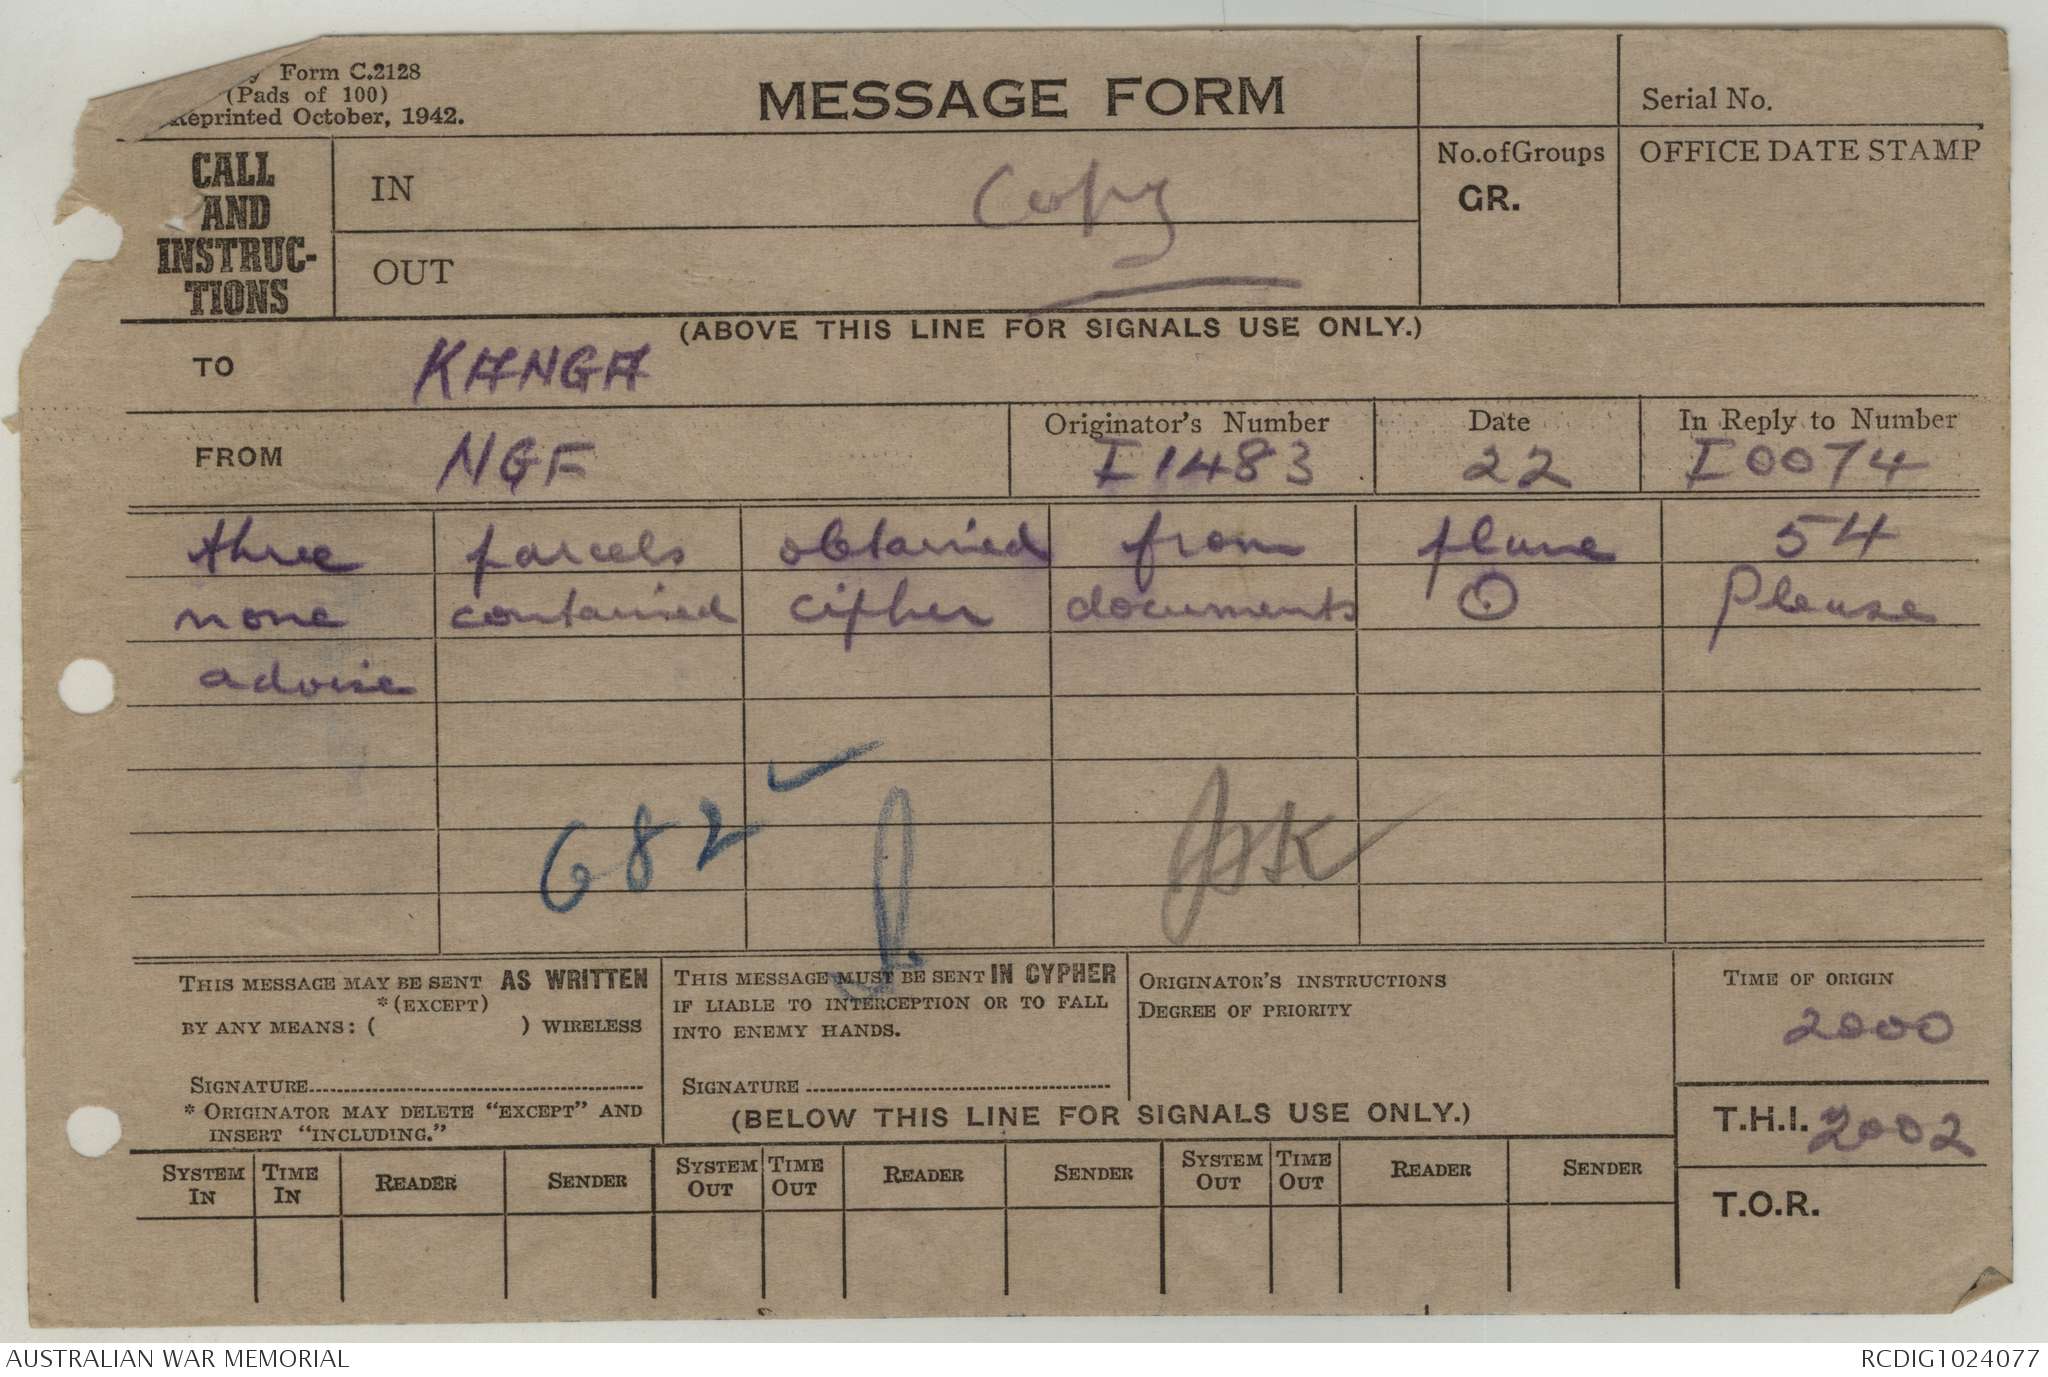 Form C.2128
(Pads of 100)
Reprinted October, 1942.
MESSAGE FORM
Serial No.
CALL
AND
INSTRUC-
TIONS
IN
Copy
OUT
No. of Groups
GR.
OFFICE DATE STAMP
(ABOVE THIS LINE FOR SIGNALS USE ONLY.)
TO KANGA
FROM NGF
Originator's Number
I1483
Date
22
In Reply to Number
I0074
three parcels obtained from plane 54
none contained cipher documents O Please
advise
682
THIS MESSAGE MAY BE SENT AS WRITTEN
*(EXCEPT)
BY ANY MEANS: ( ) WIRELESS
SIGNATURE
* ORIGINATOR MAY DELETE "EXCEPT" AND
INSERT "INCLUDING."
THIS MESSAGE MUST BE SENT IN CYPHER
IF LIABLE TO INTERCEPTION OR TO FALL
INTO ENEMY HANDS.
SIGNATURE
ORIGINATOR'S INSTRUCTIONS
DEGREE OF PRIORITY
TIME OF ORIGIN
2000
(BELOW THIS LINE FOR SIGNALS USE ONLY.)
T.H.I. 2002
T.O.R.
SYSTEM IN TIME IN READER SENDER SYSTEM OUT TIME OUT READER SENDER SYSTEM OUT TIME OUT READER SENDER
AUSTRALIAN WAR MEMORIAL RCDIG1024077